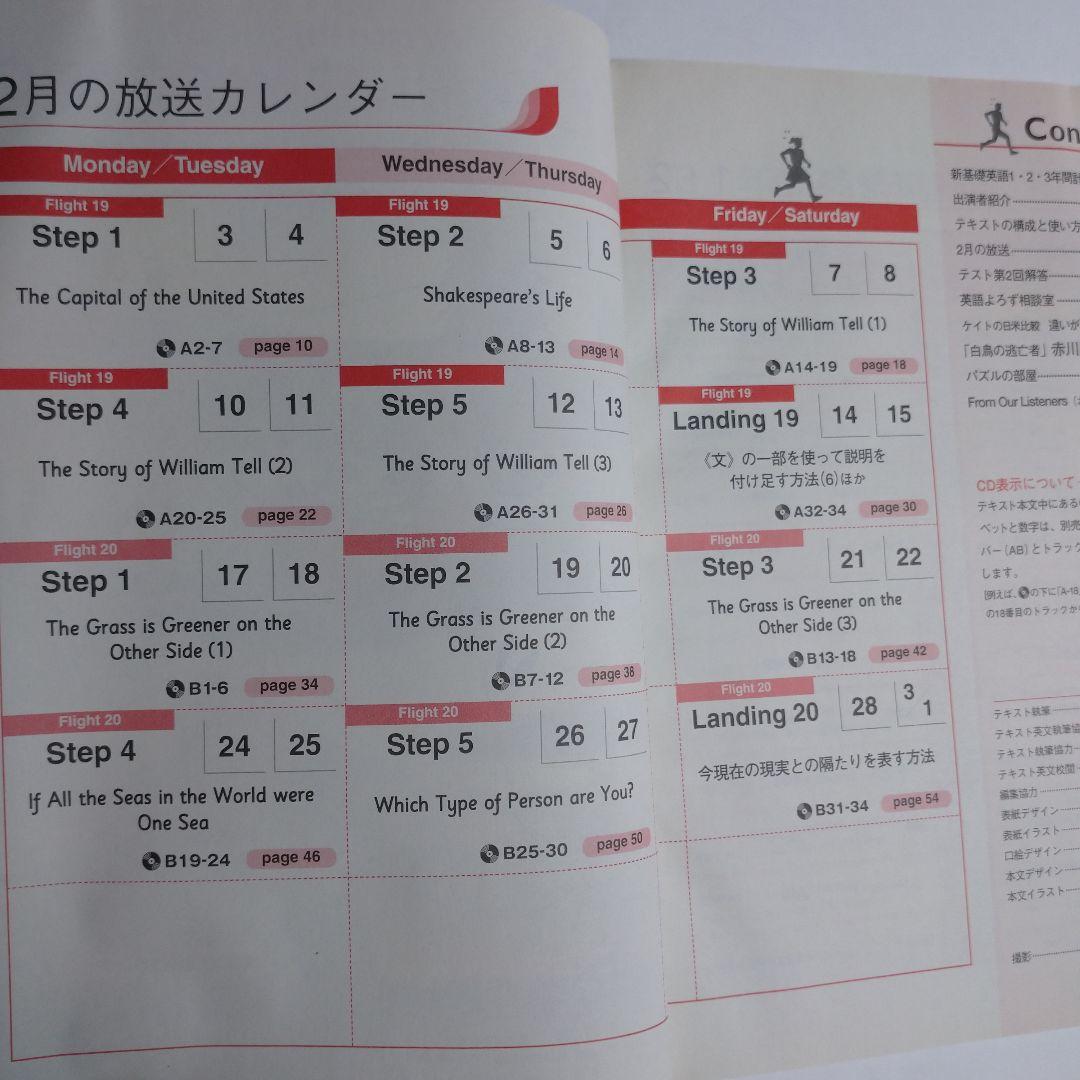 2月の放送カレンダー
Monday／Tuesday
Wednesday／Thursday
Friday／Saturday
Flight 19
Step 1
3
4
The Capital of the United States
A2-7
page 10
Flight 19
Step 2
5
6
Shakespeare's Life
A8-13
page 14
Flight 19
Step 3
7
8
The Story of William Tell (1)
A14-19
page 18
Flight 19
Step 4
10
11
The Story of William Tell (2)
A20-25
page 22
Flight 19
Step 5
12
13
The Story of William Tell (3)
A26-31
page 26
Flight 19
Landing 19
14
15
《文》の一部を使って説明を
付け足す方法(6)ほか
A32-34
page 30
Flight 20
Step 1
17
18
The Grass is Greener on the
Other Side (1)
B1-6
page 34
Flight 20
Step 2
19
20
The Grass is Greener on the
Other Side (2)
B7-12
page 38
Flight 20
Step 3
21
22
The Grass is Greener on the
Other Side (3)
B13-18
page 42
Flight 20
Step 4
24
25
If All the Seas in the World were
One Sea
B19-24
page 46
Flight 20
Step 5
26
27
Which Type of Person are You?
B25-30
page 50
Flight 20
Landing 20
28
3/1
今現在の現実との隔たりを表す方法
B31-34
page 54
Con
新基礎英語1・2・3年間計
出演者紹介
テキストの構成と使い方
2月の放送
テスト第2回解答
英語よろず相談室
ケイトの日米比較 違いが
「白鳥の逃亡者」赤川
パズルの部屋
From Our Listeners
CD表示について
テキスト本文中にある
ベットと数字は、別売
バー(AB)とトラック
します。
[例えば、の下に「A-18
の18番目のトラックから
テキスト執筆
テキスト英文執筆協
テキスト執筆協力
テキスト英文校閲
編集協力
表紙デザイン
表紙イラスト
口絵デザイン
本文デザイン
本文イラスト
撮影